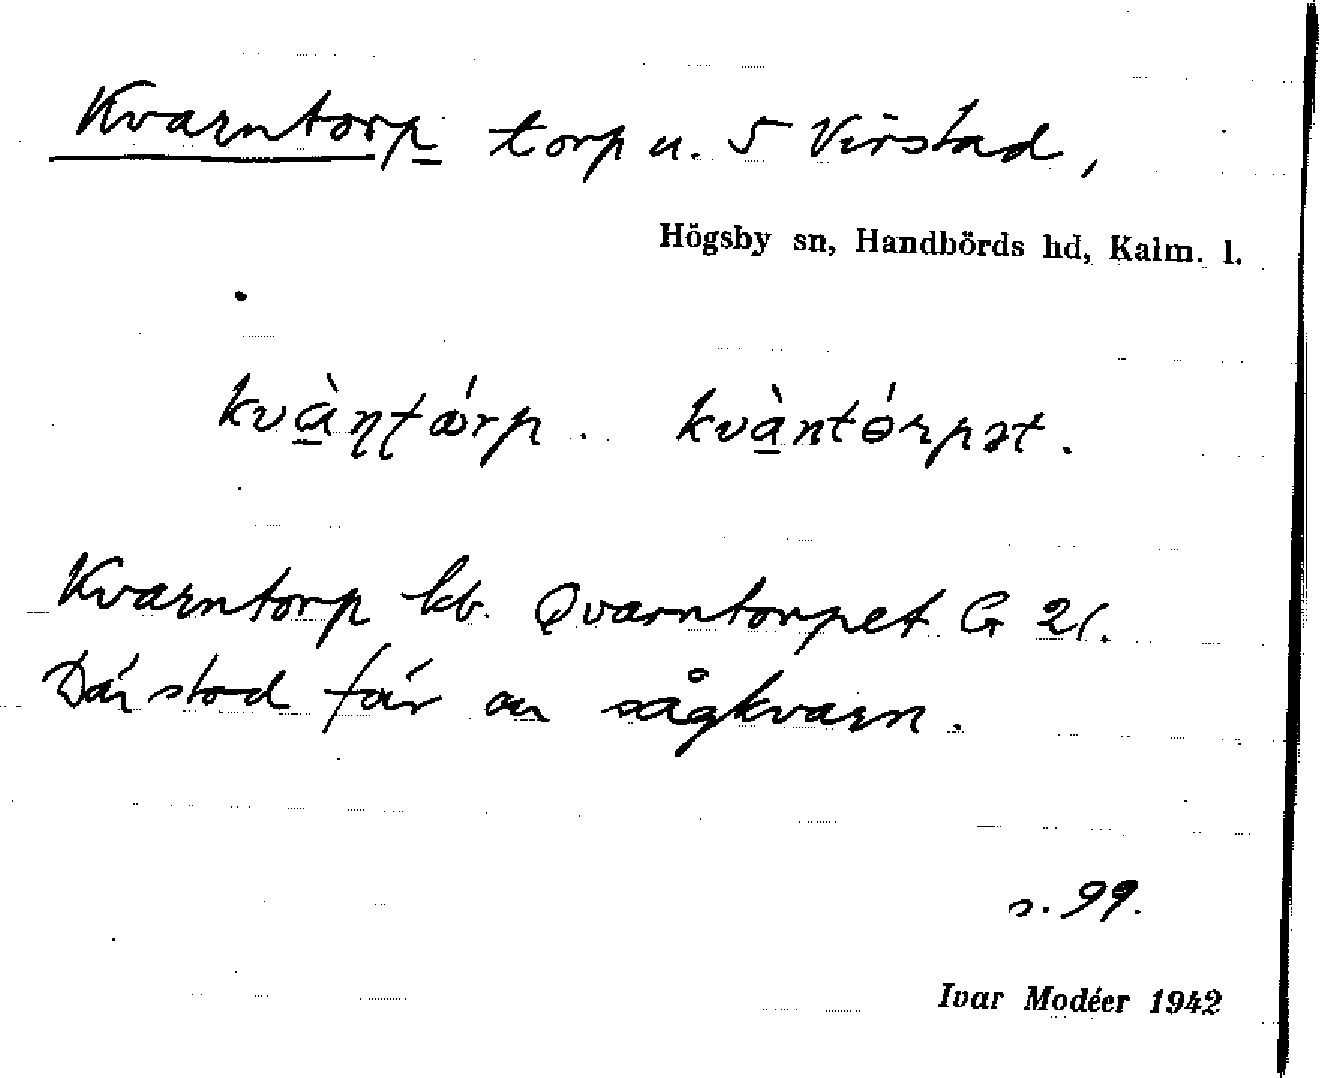 Kvarntorp torp u. 5 Virstad,
Högsby sn, Handbörds hd, Kalm. l.
kvàṇṭǿrp. kvàntɵ́rpət.
Kvarntorp kb. Qvarntorpet G 21.
Där stod förr en sågkvarn.
s. 99.
Ivar Modéer 1942